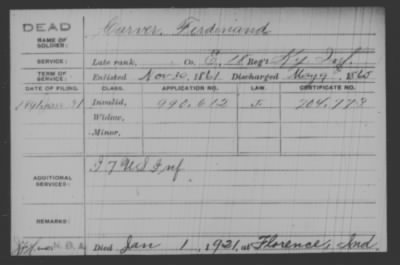 DEAD
NAME OF SOLDIER:
Carver, Ferdinand
SERVICE:
Late rank, Co. E, 18 Reg't Ky Inf.
TERM OF SERVICE:
Enlisted Nov 30, 1861 Discharged May 9, 1865
DATE OF FILING. CLASS. APPLICATION NO. LAW. CERTIFICATE NO.
1891 31 Invalid, 990.612
Widow,
Minor,
ADDITIONAL SERVICES:
I 7 U S Inf
REMARKS:
Died Jan 1, 1921, at Florence, Ind.